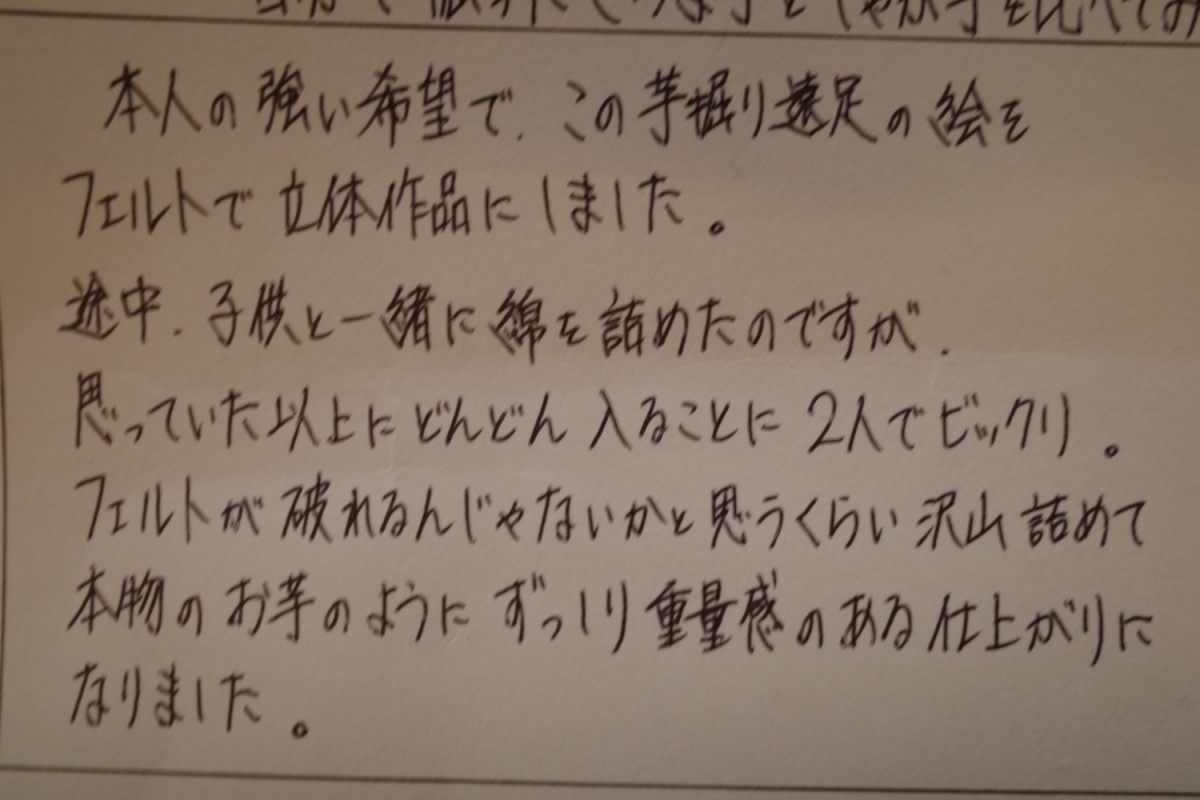 さつま芋とじゃが芋を比べてみ
本人の強い希望で、この芋掘り遠足の絵を
フェルトで立体作品にしました。
途中、子供と一緒に綿を詰めたのですが、
思っていた以上にどんどん入ることに2人でビックリ。
フェルトが破れるんじゃないかと思うくらい沢山詰めて
本物のお芋のようにずっしり重量感のある仕上がりに
なりました。